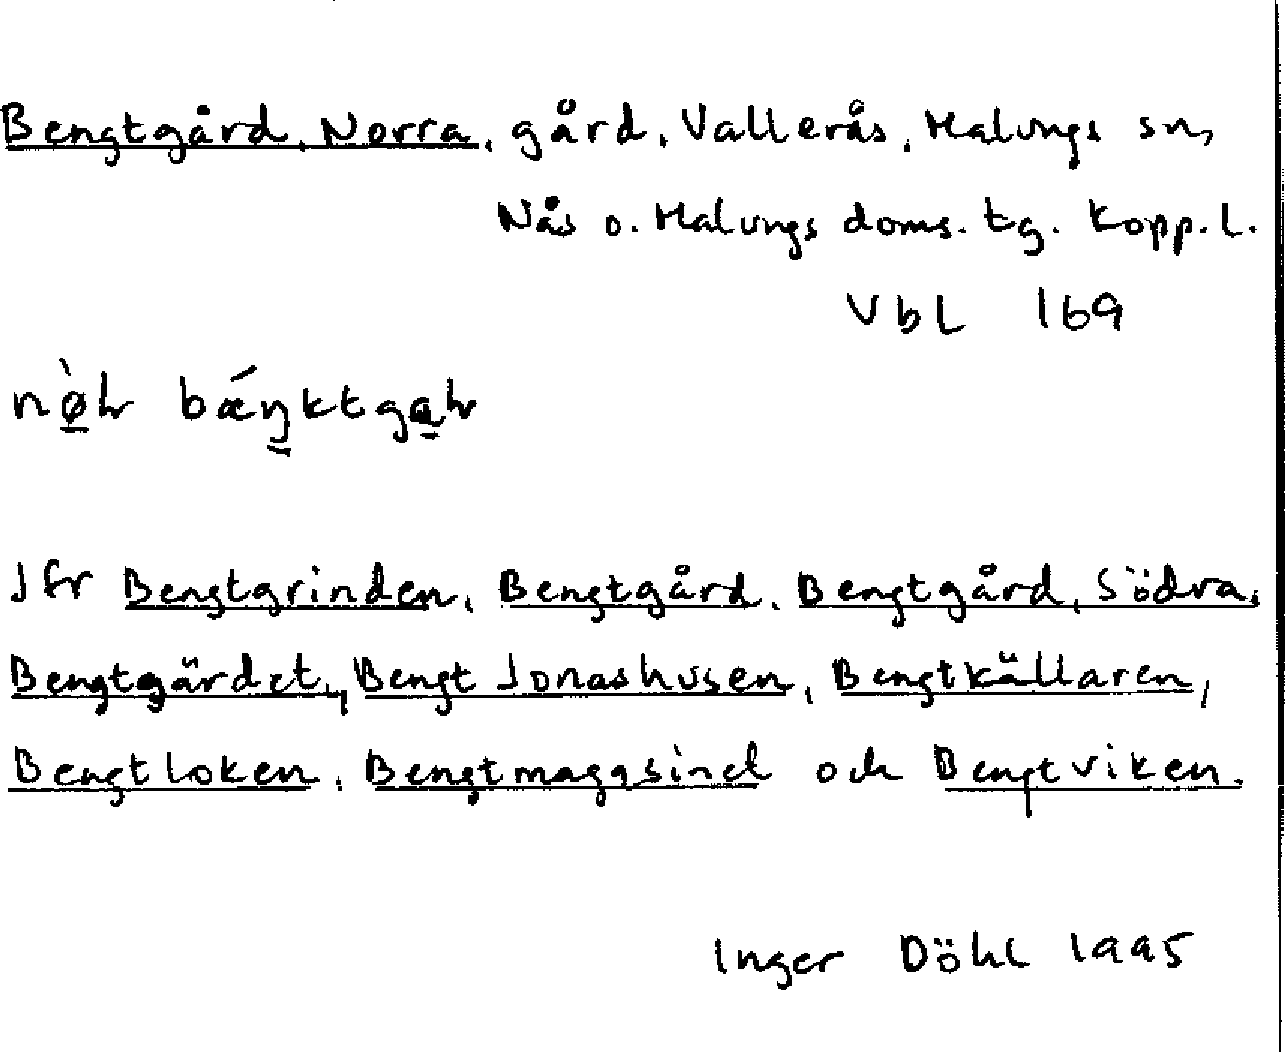 Bengtgård, Norra, gård, Vallerås, Malungs sn,
Nås o. Malungs doms. tg. Kopp. l.
VbL 169
nø̀hr bǽŋktgahr
Jfr Bengtgrinden, Bengtgård, Bengtgård, Södra,
Bengtgärdet, Bengt Jonashusen, Bengtkällaren,
Bengtloken, Bengtmaggsined och Bengtviken.
Inger Döhl 1995